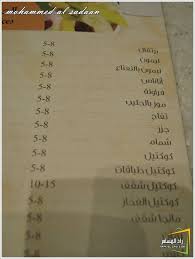 mohammed al sadaan
ces
برتقال 5-8
ليمون 5-8
ليمون بالنعناع 5-8
أناناس 5-8
فراولة 5-8
موز بالحليب 5-8
تفاح 5-8
جزر 5-8
شمام 5-8
كوكتيل 5-8
كوكتيل طبقات 5-8
كوكتيل شقف 10-15
كوكتيل الفخار 5-8
مانجا شقف 5-8
5-8
زاد المسافر